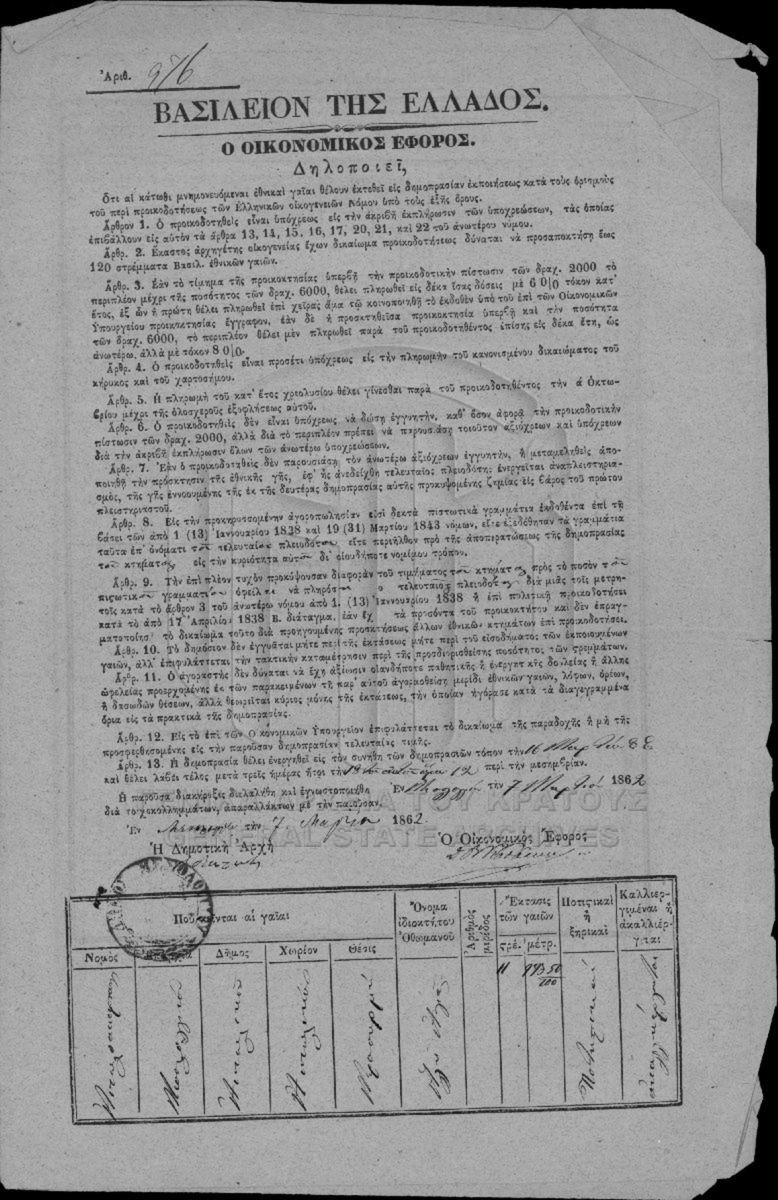 Ἀριθ. 976
ΒΑΣΙΛΕΙΟΝ ΤΗΣ ΕΛΛΑΔΟΣ.
Ο ΟΙΚΟΝΟΜΙΚΟΣ ΕΦΟΡΟΣ.
Δηλοποιεῖ,
Ὅτι αἱ κάτωθι μνημονευόμεναι ἐθνικαὶ γαῖαι θέλουν ἐκτεθεῖ εἰς δημοπρασίαν ἐκποιήσεως κατὰ τοὺς ὁρισμοὺς
τοῦ περὶ προικοδοτήσεως τῶν Ἑλληνικῶν οἰκογενειῶν Νόμου ὑπὸ τοὺς ἑξῆς ὅρους.
Ἄρθρον 1. Ὁ προικοδοτηθεὶς εἶναι ὑπόχρεως εἰς τὴν ἀκριβῆ ἐκπλήρωσιν τῶν ὑποχρεώσεων, τὰς ὁποίας
ἐπιβάλλουν εἰς αὐτὸν τὰ ἄρθρα 13, 14, 15, 16, 17, 20, 21, καὶ 22 τοῦ ἀνωτέρω νόμου.
Ἄρθρ. 2. Ἕκαστος ἀρχηγέτης οἰκογενείας ἔχων δικαίωμα προικοδοτήσεως δύναται νὰ προσαποκτήσῃ ἕως
120 στρέμματα Βασιλ. ἐθνικῶν γαιῶν.
Ἄρθρ. 3. Ἐὰν τὸ τίμημα τῆς προικοκτησίας ὑπερβῇ τὴν προικοδοτικὴν πίστωσιν τῶν δραχ. 2000 τὸ
περιπλέον μέχρι τῆς ποσότητος τῶν δραχ. 6000, θέλει πληρωθεῖ εἰς δέκα ἴσας δόσεις μὲ 6 0|0 τόκον κατ'
ἔτος, ἐξ ὧν ἡ πρώτη θέλει πληρωθεῖ ἐπὶ χεῖρας ἅμα τῷ κοινοποιηθῇ τὸ ἐκδοθὲν ὑπὸ τοῦ ἐπὶ τῶν Οἰκονομικῶν
Ὑπουργείου προικοκτησίας ἔγγραφον, ἐὰν δὲ ἡ προσκτηθεῖσα προικοκτησία ὑπερβῇ καὶ τὴν ποσότητα
τῶν δραχ. 6000, τὸ περιπλέον θέλει μὲν πληρωθεῖ παρὰ τοῦ προικοδοτηθέντος ἐπίσης εἰς δέκα ἔτη, ὡς
ἀνωτέρω, ἀλλὰ μὲ τόκον 8 0|0.
Ἄρθρ. 4. Ὁ προικοδοτηθεὶς εἶναι προσέτι ὑπόχρεως εἰς τὴν πληρωμὴν τοῦ κανονισμένου δικαιώματος τοῦ
κήρυκος καὶ τοῦ χαρτοσήμου.
Ἄρθρ. 5. Ἡ πληρωμὴ τοῦ κατ' ἔτος χρεολυσίου θέλει γίνεσθαι παρὰ τοῦ προικοδοτηθέντος τὴν ά Ὀκτω-
βρίου μέχρι τῆς ὁλοσχεροῦς ἐξοφλήσεως αὐτοῦ.
Ἄρθρ. 6. Ὁ προικοδοτηθεὶς δὲν εἶναι ὑπόχρεως νὰ δώσῃ ἐγγυητὴν, καθ' ὅσον ἀφορᾷ τὴν προικοδοτικὴν
πίστωσιν τῶν δραχ. 2000, ἀλλὰ διὰ τὸ περιπλέον πρέπει νὰ παρουσιάσῃ τοιοῦτον ἀξιόχρεων καὶ ὑπόχρεων
διὰ τὴν ἀκριβῆ ἐκπλήρωσιν ὅλων τῶν ἀνωτέρω ὑποχρεώσεων.
Ἄρθρ. 7. Ἐὰν ὁ προικοδοτηθεὶς δὲν παρουσιάσῃ τὸν ἀνωτέρω ἀξιόχρεων ἐγγυητὴν, ἢ μεταμεληθεὶς ἀπο-
ποιηθῇ τὴν πρόσκτησιν τῆς ἐθνικῆς γῆς, ἐφ' ἧς ἀνεδείχθη τελευταῖος πλειοδότης ἐνεργεῖται ἀναπλειστηρια-
σμὸς, τῆς γῆς ἐννοουμένης τῆς ἐκ τῆς δευτέρας δημοπρασίας αὐτῆς προκυψομένης ζημίας εἰς βάρος τοῦ πρώτου
πλειστηριαστοῦ.
Ἄρθρ. 8. Εἰς τὴν προκηρυσσομένην ἀγοροπωλησίαν εἰσὶ δεκτὰ πιστωτικὰ γραμμάτια ἐκδοθέντα ἐπὶ τῇ
βάσει τῶν ἀπὸ 1 (13) Ἰαννουαρίου 1838 καὶ 19 (31) Μαρτίου 1843 νόμων, εἴτε ἐξεδόθησαν τὰ γραμμάτια
ταῦτα ἐπ' ὀνόματι τοῦ τελευταίου πλειοδότου εἴτε περιῆλθον πρὸ τῆς ἀποπερατώσεως τῆς δημοπρασίας
τοῦ κτήματος εἰς τὴν κυριότητα αὐτοῦ δι' οἱουδήποτε νομίμου τρόπου.
Ἄρθρ. 9. Τὴν ἐπὶ πλέον τυχὸν προκύψουσαν διαφορὰν τοῦ τιμήματος τοῦ κτήματος πρὸς τὸ ποσὸν τοῦ
πιστωτικοῦ γραμματίου ὀφείλει νὰ πληρώσῃ ὁ τελευταῖος πλειοδότης διὰ μιᾶς τοῖς μετρη-
τοῖς κατὰ τὸ ἄρθρον 3 τοῦ ἀνωτέρω νόμου ἀπὸ 1. (13) Ἰαννουαρίου 1838 ἢ ἐπὶ πολιτικῇ προικοδοτήσει
κατὰ τὸ ἀπὸ 17 Ἀπριλίου 1838 Β. διάταγμα, ἐὰν ἔχῃ τὰ προσόντα τοῦ προικοκτήτου καὶ δὲν ἐπραγ-
ματοποίησε τὸ δικαίωμα τοῦτο διὰ προηγουμένης προσκτήσεως ἄλλων ἐθνικῶν κτημάτων ἐπὶ προικοδοτήσει.
Ἄρθρ. 10. Τὸ δημόσιον δὲν ἐγγυᾶται μήτε περὶ τῆς ἐκτάσεως μήτε περὶ τοῦ εἰσοδήματος τῶν ἐκποιουμένων
γαιῶν, ἀλλ' ἐπιφυλάττεται τὴν τακτικὴν καταμέτρησιν περὶ τῆς προσδιορισθείσης ποσότητος τῶν στρεμμάτων.
Ἄρθρ. 11. Ὁ ἀγοραστὴς δὲν δύναται νὰ ἔχῃ ἀξίωσιν οἱανδήποτε παθητικῆς ἢ ἐνεργητικῆς δουλείας ἢ ἄλλης
ὠφελείας προερχομένης ἐκ τῶν παρακειμένων τῇ παρ' αὐτοῦ ἀγορασθείσῃ μερίδι ἐθνικῶν γαιῶν, λόφων, ὀρέων,
ἢ δασωδῶν θέσεων, ἀλλὰ θεωρεῖται κύριος μόνης τῆς ἐκτάσεως, τὴν ὁποίαν ἠγόρασε κατὰ τὰ διαγεγραμμένα
ὅρια εἰς τὰ πρακτικὰ τῆς δημοπρασίας.
Ἄρθρ. 12. Εἰς τὸ ἐπὶ τῶν Οἰκονομικῶν Ὑπουργεῖον ἐπιφυλάττεται τὸ δικαίωμα τῆς παραδοχῆς ἢ μὴ τῆς
προσφερθησομένης εἰς τὴν παροῦσαν δημοπρασίαν τελευταίας τιμῆς.
Ἄρθρ. 13. Ἡ δημοπρασία θέλει ἐνεργηθεῖ εἰς τὸν συνήθη τῶν δημοπρασιῶν τόπον τὴν 16 Μαρτίου ἔ. ἔ.
καὶ θέλει λάβει τέλος μετὰ τρεῖς ἡμέρας ἤτοι τὴν 19 τοῦ αὐτοῦ 12 περὶ τὴν μεσημβρίαν.
Ἐν τὴν 7 Μαρτίου 1862
Ἡ παροῦσα διακήρυξις διελαλήθη καὶ ἐγνωστοποιήθη
διὰ τοιχοκολλημάτων, ἀπαραλλάκτων μὲ τὴν παροῦσαν.
Ἐν τὴν 7 Μαρτίου 1862.
Ἡ Δημοτικὴ Ἀρχὴ
Ὁ Οἰκονομικὸς Ἔφορος
ΑΡΧΕΙΑ ΤΟΥ ΚΡΑΤΟΥΣ
GENERAL STATE ARCHIVES
Ποῦ κεῖνται αἱ γαῖαι
Ὄνομα ἰδιοκτήτου Ὀθωμανοῦ
Ἀριθμὸς μερίδος
Ἔκτασις τῶν γαιῶν
Ποτιστικαὶ ἢ ξηρικαὶ
Καλλιεργημέναι ἢ ἀκαλλιέργηται
Νομὸς Δῆμος Χωρίον Θέσις στρέ. μέτρ.
11